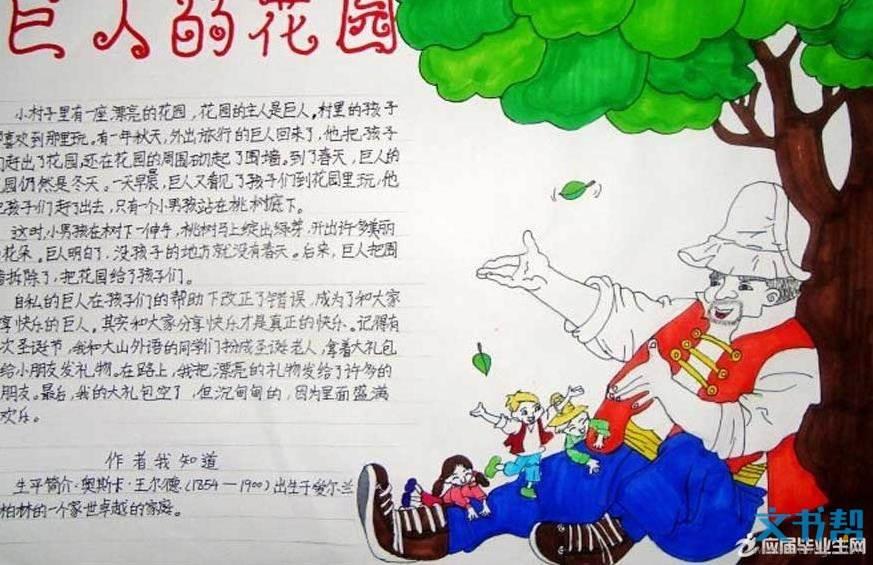 巨人的花园
小村子里有一座漂亮的花园，花园的主人是巨人。村里的孩子
喜欢到那里玩。有一年秋天，外出旅行的巨人回来了，他把孩子
们赶出了花园。还在花园的周围砌起了围墙。到了春天，巨人的
园仍然是冬天。一天早晨，巨人又看见了孩子们到花园里玩，他
把孩子们赶了出去，只有一个小男孩站在桃树底下。
这时，小男孩在树下一伸手，桃树马上绽出绿芽，开出许多美丽
花朵。巨人明白了，没孩子的地方就没有春天。后来，巨人把围
墙拆除了，把花园给了孩子们。
自私的巨人在孩子们的帮助下改正了错误，成为了和大家
享快乐的巨人。其实和大家分享快乐才是真正的快乐。记得有
次圣诞节，我和大山外语的同学们扮成圣诞老人，拿着大礼包
给小朋友发礼物。在路上，我把漂亮的礼物发给了许多的
朋友。最后，我的大礼包空了，但沉甸甸的，因为里面盛满
欢乐。
作者我知道
生平简介·奥斯卡·王尔德（1854—1900）出生于爱尔兰
柏林的一个家世卓越的家庭。
文书帮
应届毕业生网